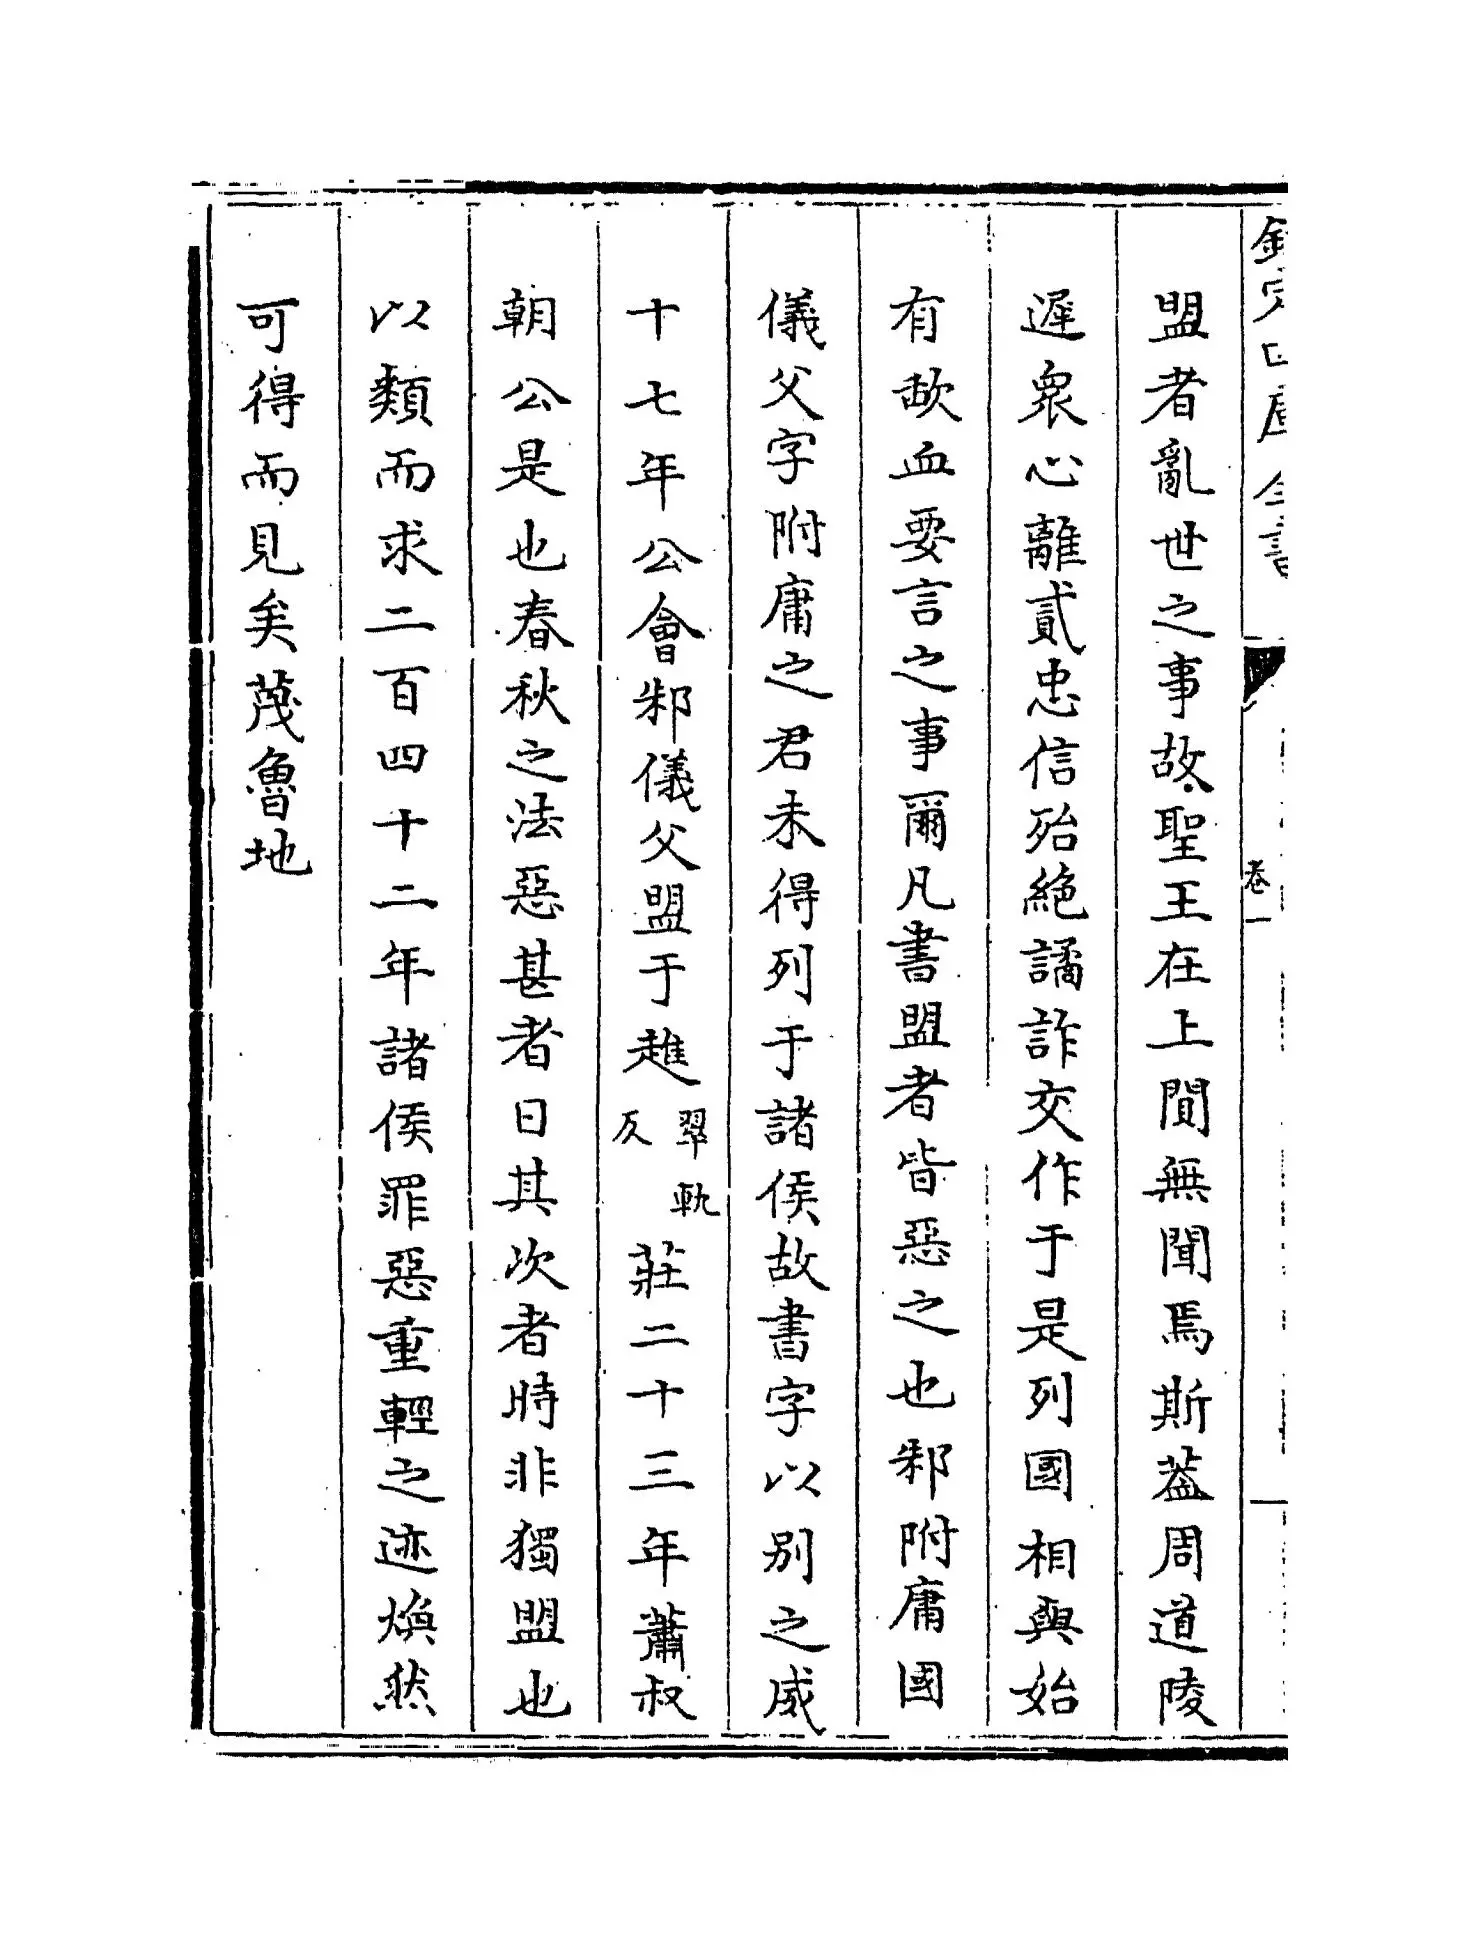 欽定四庫全書
卷一
盟者亂世之事故聖王在上閴無聞焉斯葢周道陵
遲衆心離貳忠信殆絶譎詐交作于是列國相與始
有歃血要言之事爾凡書盟者皆惡之也邾附庸國
儀父字附庸之君未得列于諸侯故書字以别之威
十七年公會邾儀父盟于趡翠軌反莊二十三年蕭叔
朝公是也春秋之法惡甚者日其次者時非獨盟也
以類而求二百四十二年諸侯罪惡重輕之迹煥然
可得而見矣蔑魯地